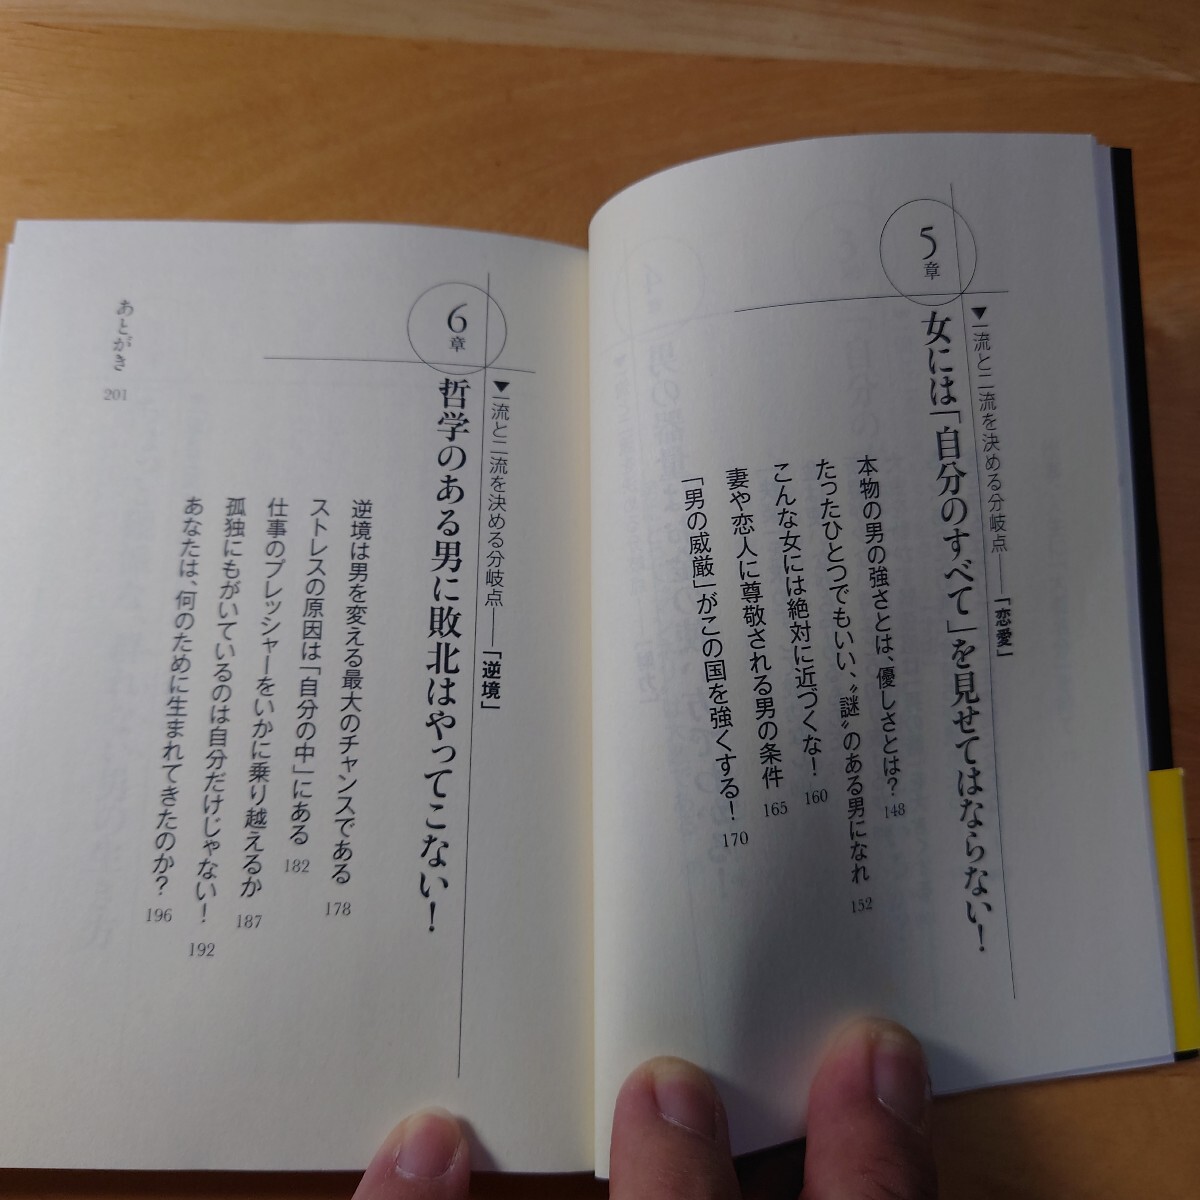 5章
▼一流と二流を決める分岐点——「恋愛」
女には「自分のすべて」を見せてはならない！
本物の男の強さとは、優しさとは？ 148
たったひとつでもいい、〝謎〟のある男になれ 152
こんな女には絶対に近づくな！ 160
妻や恋人に尊敬される男の条件 165
「男の威厳」がこの国を強くする！ 170
6章
▼一流と二流を決める分岐点——「逆境」
哲学のある男に敗北はやってこない！
逆境は男を変える最大のチャンスである 178
ストレスの原因は「自分の中」にある 182
仕事のプレッシャーをいかに乗り越えるか 187
孤独にもがいているのは自分だけじゃない！ 192
あなたは、何のために生まれてきたのか？ 196
あとがき 201